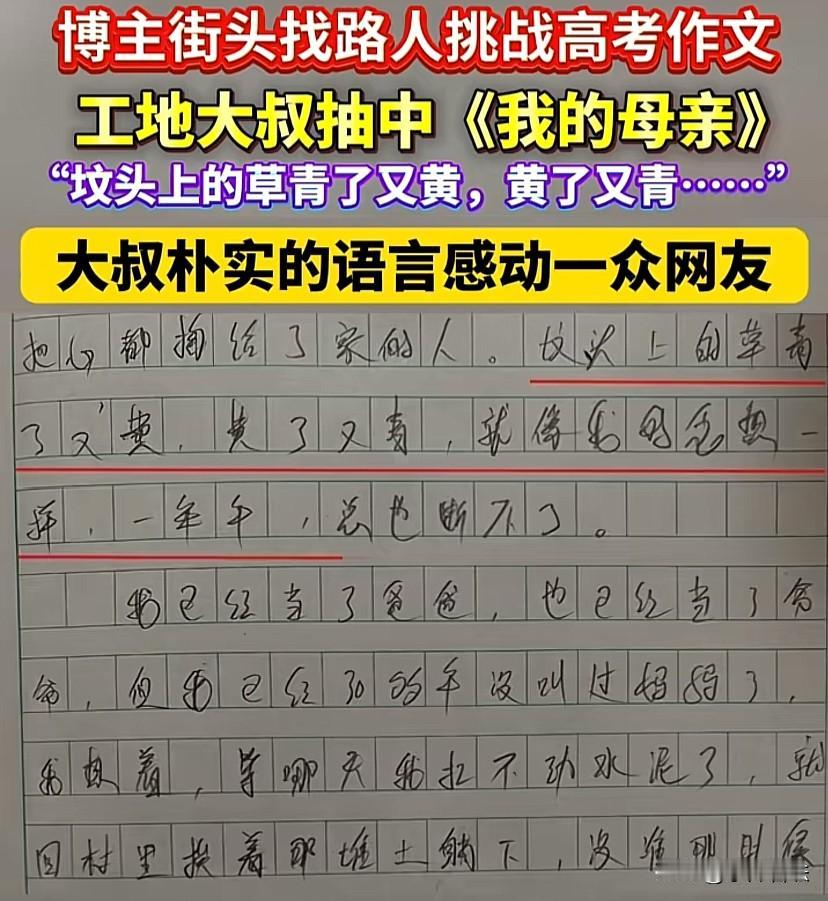 博主街头找路人挑战高考作文
工地大叔抽中《我的母亲》
“坟头上的草青了又黄，黄了又青……”
大叔朴实的语言感动一众网友
把心都掏给了家的人。坟头上的草青
了又黄，黄了又青，就像我的思想一
样，一年年，总也断不了。
我已经当了爸爸，也已经当了爷
爷，但我已经30多年没叫过妈妈了，
我想着，等哪天我扛不动水泥了，就
回村里挨着那堆土躺下，没准那时候